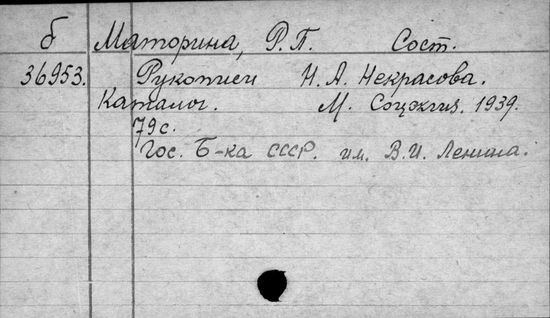 б Маторина, Р.П. Сост.
36953. Рукописи Н.А. Некрасова.
Каталог. М. Соцэкгиз. 1939.
79 с.
Гос. Б-ка СССР. им. В.И. Ленина.